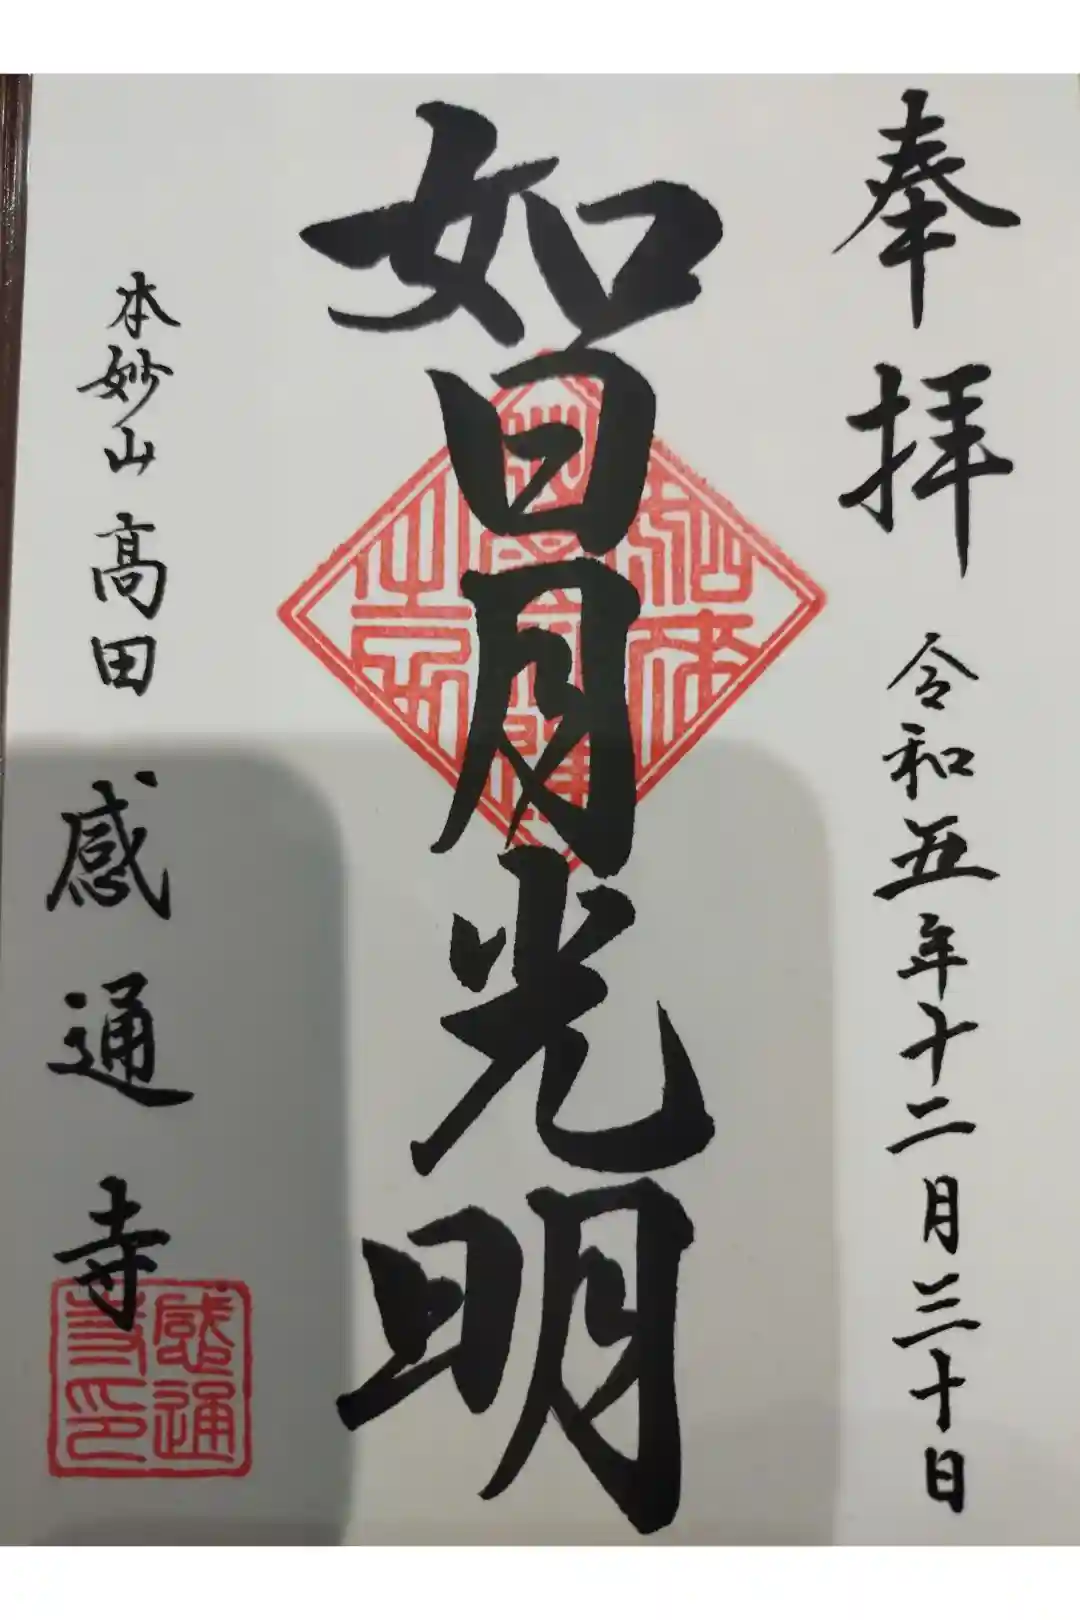 奉拝 令和五年十二月三十日
如日月光明
本妙山 高田 感通寺
感通
寺印